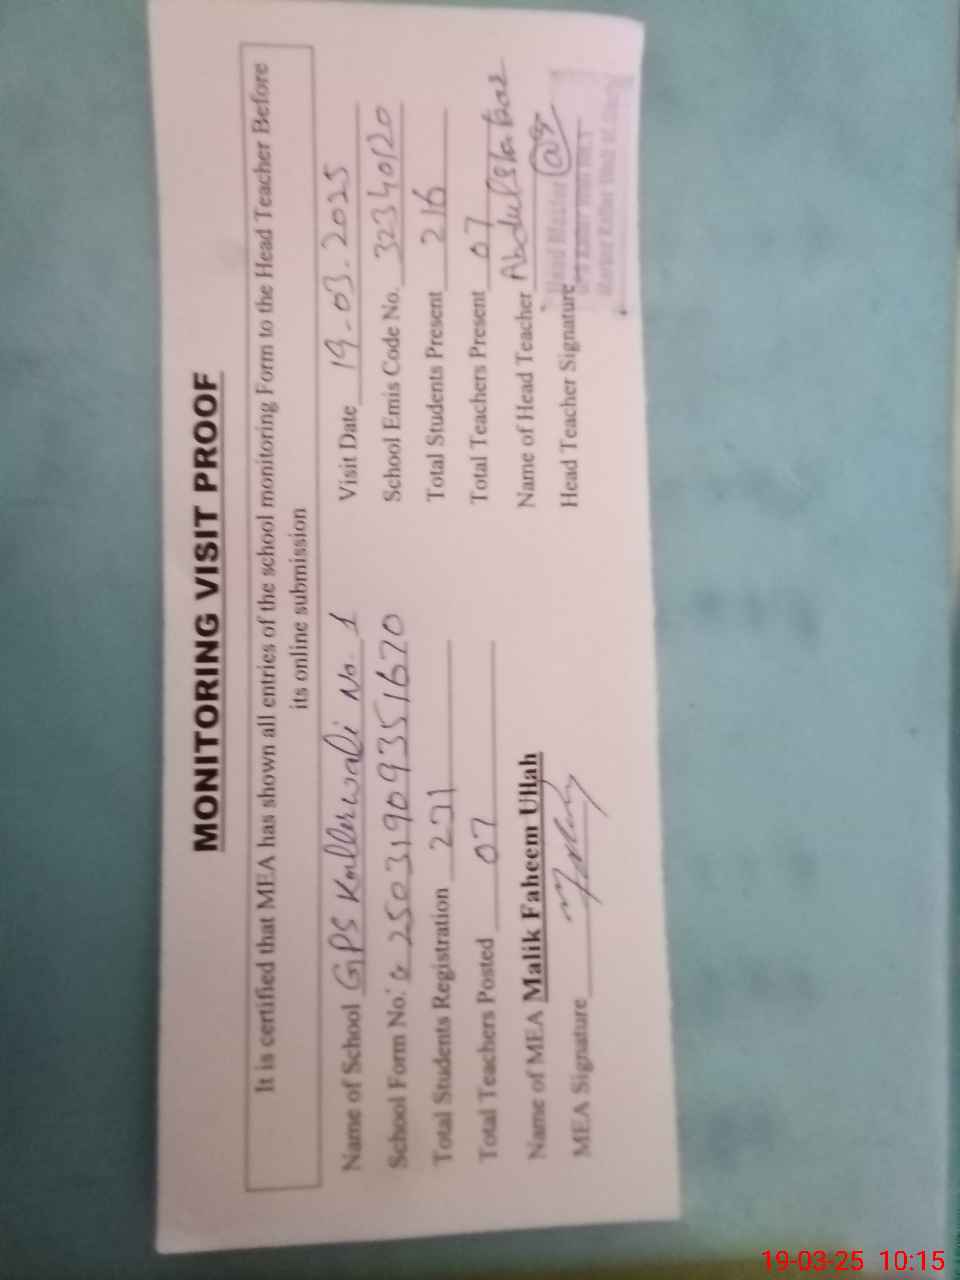 MONITORING VISIT PROOF
It is certified that MEA has shown all entries of the school monitoring Form to the Head Teacher Before
its online submission
Name of School GPS Kallerwali No. 1
Visit Date 19-03-2025
School Form No: 25031909351670
School Emis Code No. 32340120
Total Students Registration 221
Total Students Present 216
Total Teachers Posted 07
Total Teachers Present 07
Name of MEA Malik Faheem Ullah
Name of Head Teacher Abdul
MEA Signature
Head Teacher Signature
Head Master
19-03-25 10:15